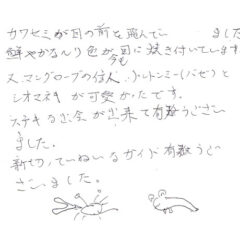 カワセミが目の前を飛んで ました
鮮やかなみどり色が目に焼き付いています
今も
又、マングローブの住人 トントンミー(ハゼ)と
シオマネキ が可愛かったです。
ステキな出会が出来て有難うござい
ました。
親切、ていねいなガイド有難うご
ざいました。